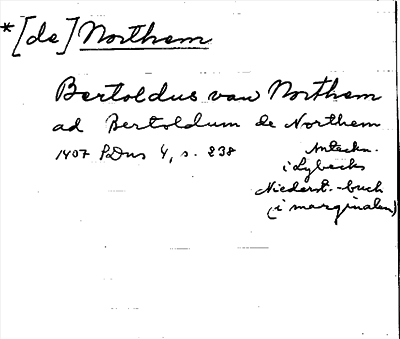 *[de] Northem
Bertoldus van Northem
ad Bertoldum de Northem
1407 PDns 4, s. 238
Anteckn.
i Lybecks
Niederst.-buch
(i marginalen)